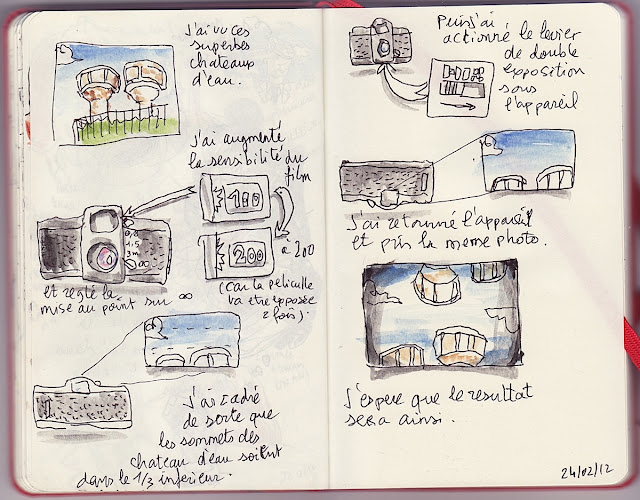 J'ai vu ces
superbes
chateaux
d'eau.
J'ai augmenté
la sensibilité du
film
100
à 200
200
0,8
1,5
3m
∞
et réglé la
mise au point sur ∞
(car la pellicule
va etre exposée
2 fois).
J'ai cadré
de sorte que
les sommets des
chateau d'eau soient
dans le 1/3 inférieur.
Puis j'ai
actionné le levier
de double
exposition
sous
l'appareil
J'ai retourné l'appareil
et pris la meme photo.
J'espere que le resultat
sera ainsi.
24/02/12